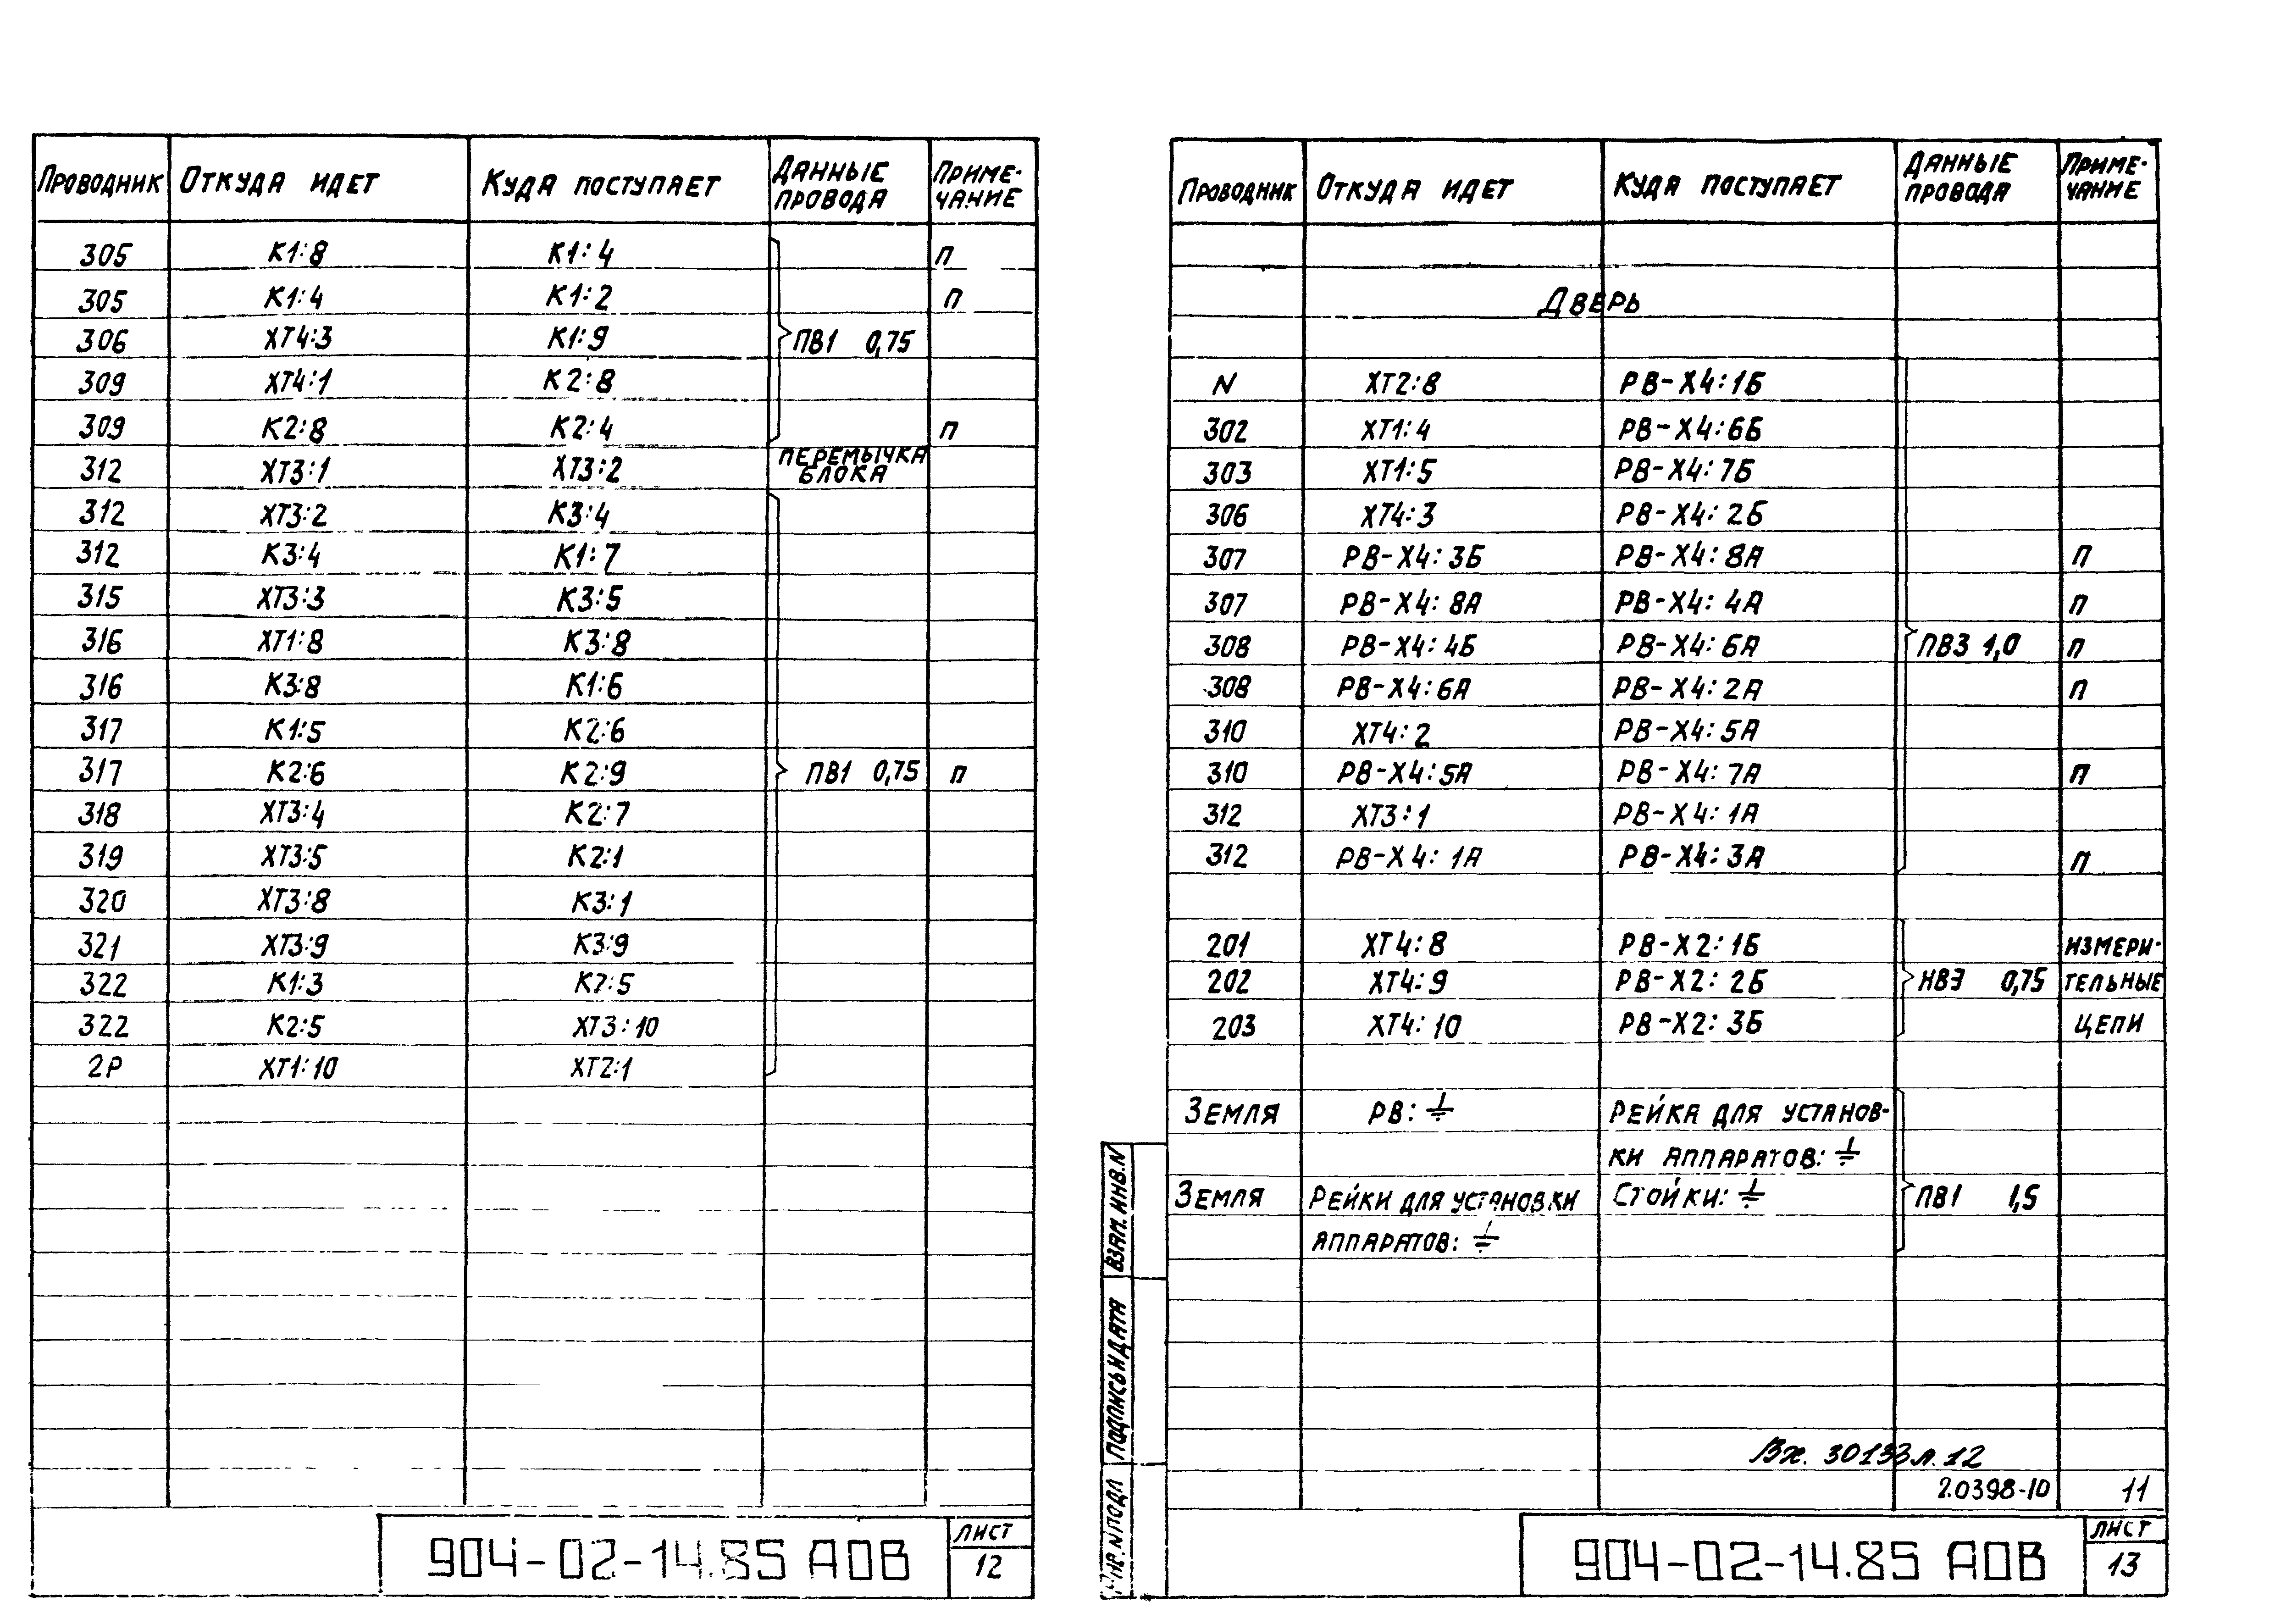 Проводник Откуда идет Куда поступает Данные провода Примечание
305 К1:8 К1:4 п
305 К1:4 К1:2 п
306 ХТ4:3 К1:9 ПВ1 0,75
309 ХТ4:1 К2:8
309 К2:8 К2:4 п
312 ХТ3:1 ХТ3:2 Перемычка блока
312 ХТ3:2 К3:4
312 К3:4 К1:7
315 ХТ3:3 К3:5
316 ХТ1:8 К3:8
316 К3:8 К1:6
317 К1:5 К2:6
317 К2:6 К2:9 ПВ1 0,75 п
318 ХТ3:4 К2:7
319 ХТ3:5 К2:1
320 ХТ3:8 К3:1
321 ХТ3:9 К3:9
322 К1:3 К2:5
322 К2:5 ХТ3:10
2Р ХТ1:10 ХТ2:1
904-02-14.85 АОВ
Лист
12
Проводник Откуда идет Куда поступает Данные провода Приме-
чание
Дверь
N ХТ2:8 РВ-Х4:1Б
302 ХТ1:4 РВ-Х4:6Б
303 ХТ1:5 РВ-Х4:7Б
306 ХТ4:3 РВ-Х4:2Б
307 РВ-Х4:3Б РВ-Х4:8А п
307 РВ-Х4:8А РВ-Х4:4А п
308 РВ-Х4:4Б РВ-Х4:6А ПВ3 1,0 п
308 РВ-Х4:6А РВ-Х4:2А п
310 ХТ4:2 РВ-Х4:5А
310 РВ-Х4:5А РВ-Х4:7А п
312 ХТ3:1 РВ-Х4:1А
312 РВ-Х4:1А РВ-Х4:3А п
201 ХТ4:8 РВ-Х2:1Б Измери-
202 ХТ4:9 РВ-Х2:2Б НВЭ 0,75 тельные
203 ХТ4:10 РВ-Х2:3Б цепи
Земля РВ:⏚ Рейка для установ-
ки аппаратов:⏚
Земля Рейки для установки Стойки:⏚ ПВ1 1,5
аппаратов:⏚
Взам. инв. N
Подпись и дата
Инв. N подл
Вх. 30133 л. 12
20398-10 11
904-02-14.85 АОВ
Лист
13